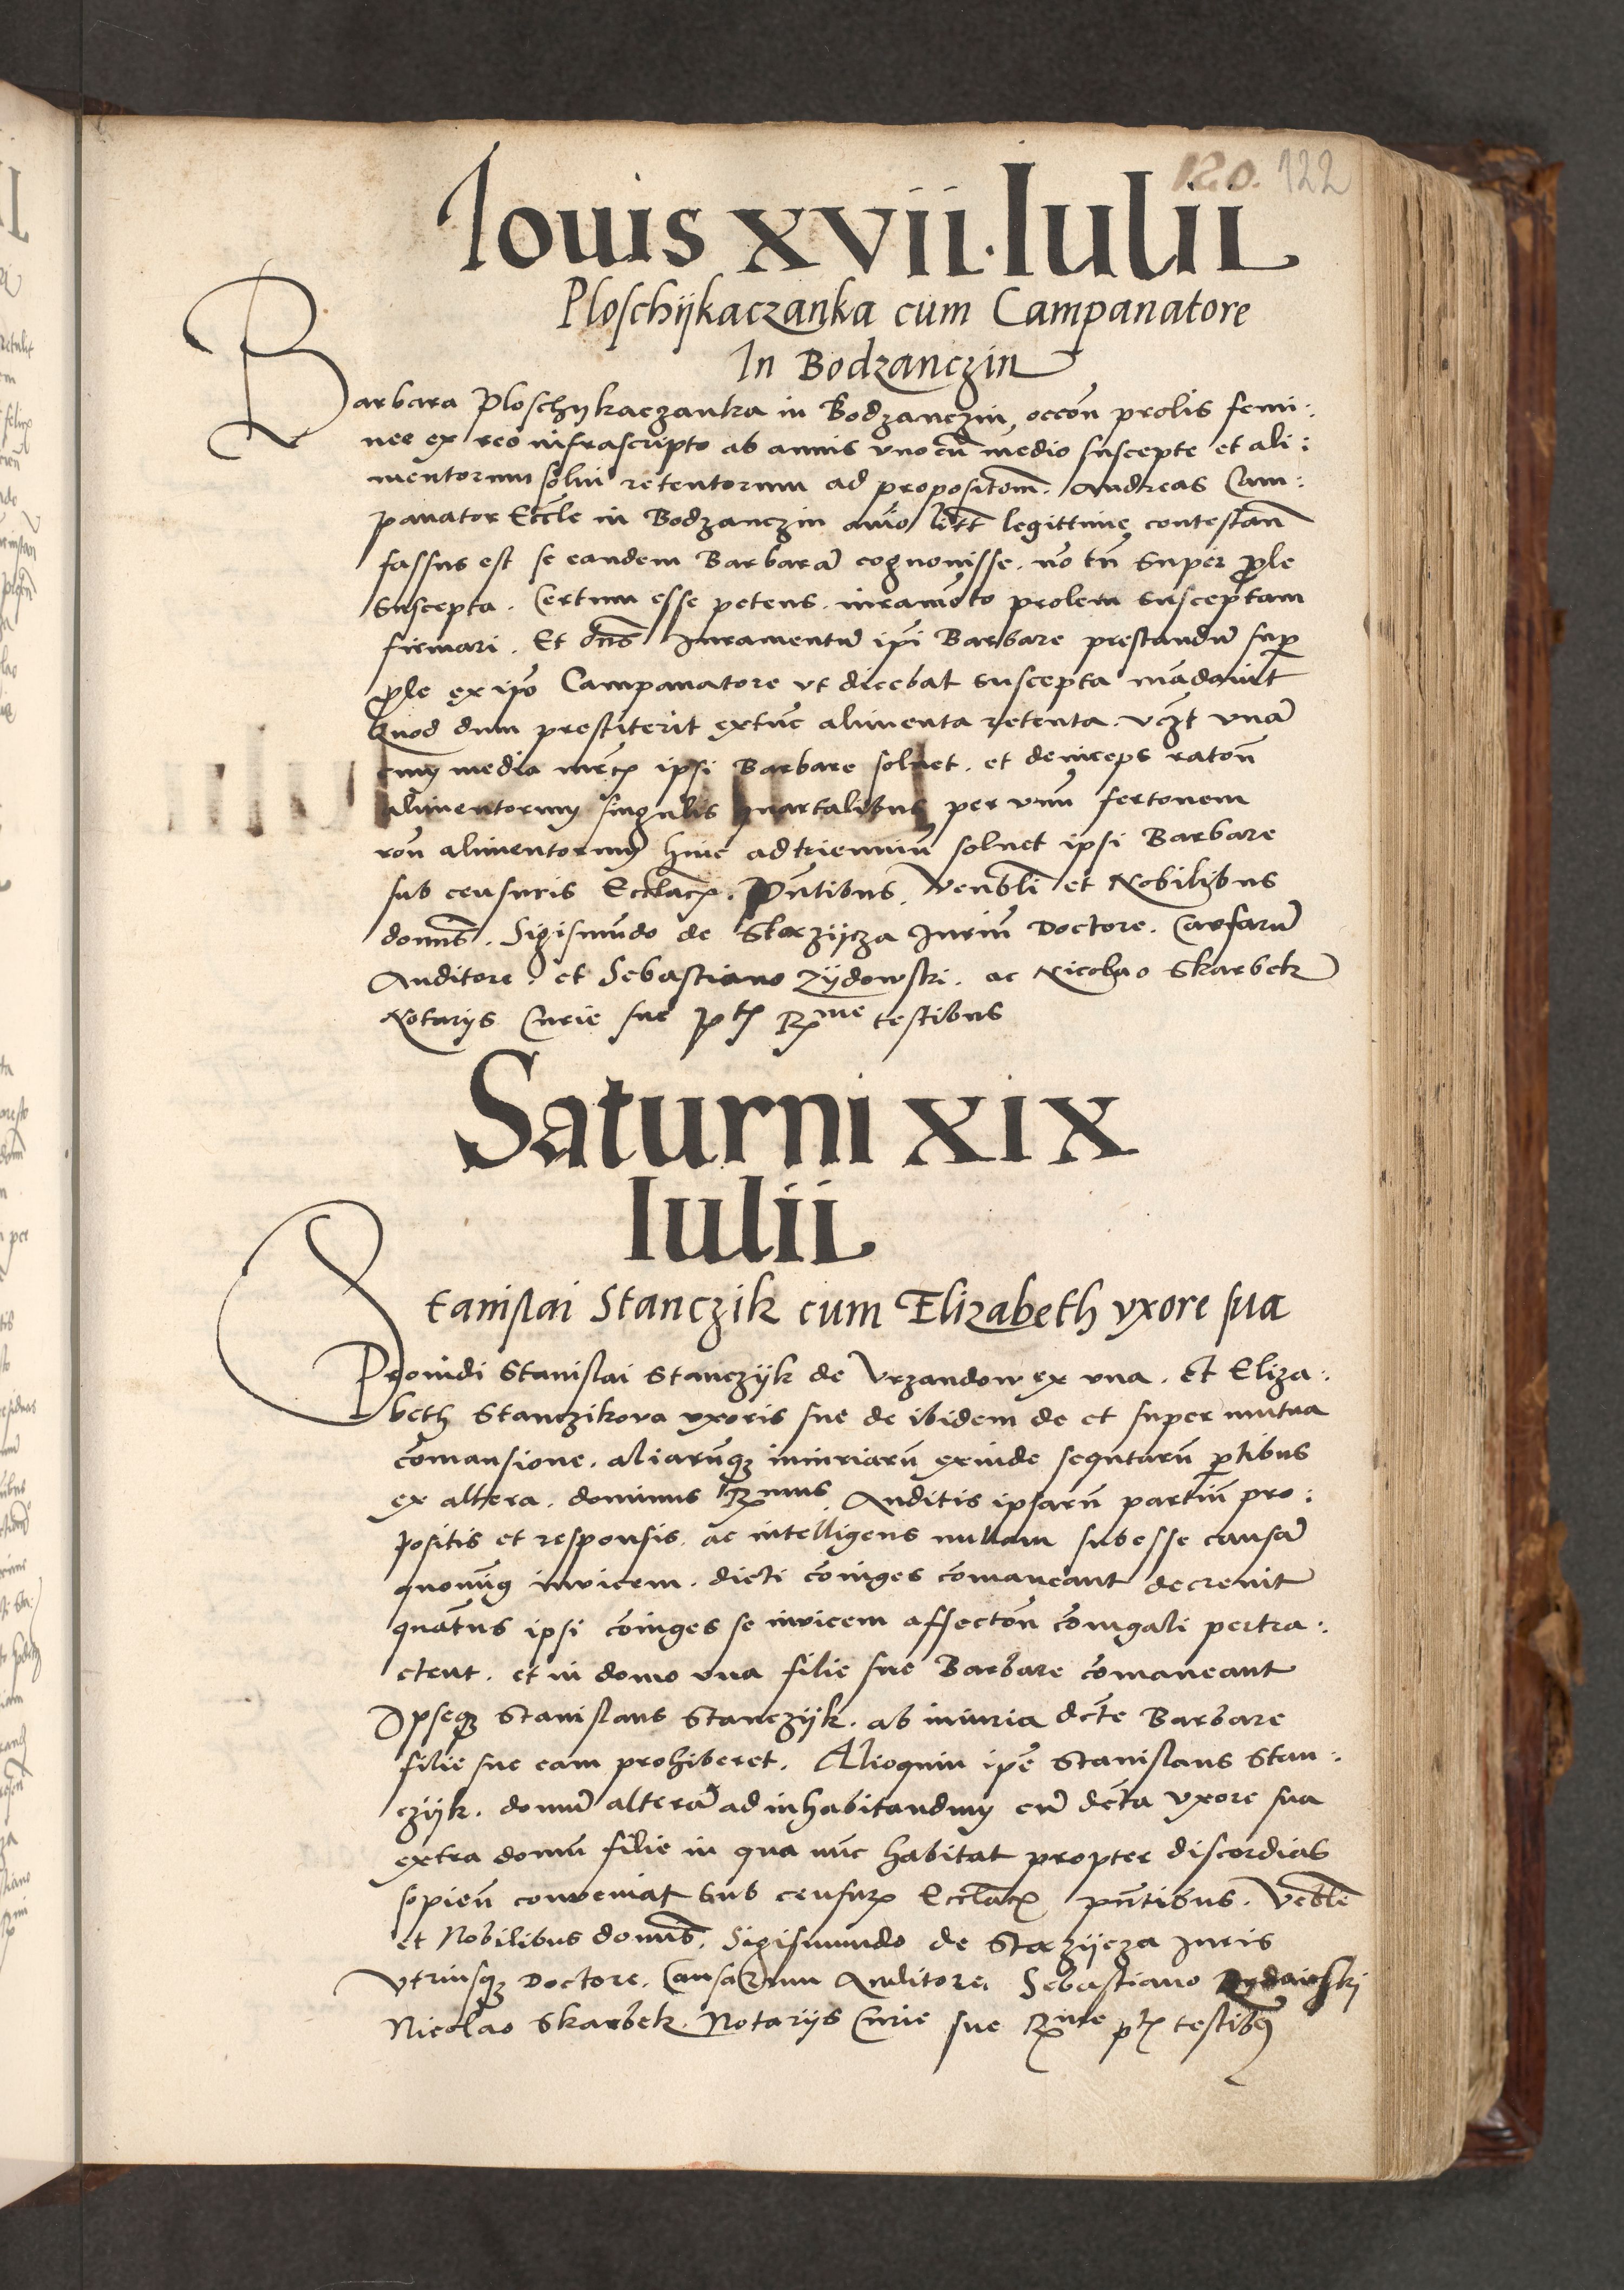 120. 122
Iouis xvii. Iulii
Ploschijkaczanka cum Campanatore
In Bodzanczin
Barbara Ploschijkaczanka in Bodzanczin, occōn prolis femi:
nee ex reo infrascripto ab annis uno cū medio suscepte et ali:
mentorum solui retentorum ad propositōm. Andreas Cam:
panator Eccłe in Bodzanczin legittime contestañ
fassus est se eandem Barbarā cognouisse. nō tn̄ super ꝓle
suscepta. Certum esse petens. iuramēto prolem susceptam
firmari. Et dn̄s Iuramentū ip̄i Barbare prestandū suꝑ
ꝓle ex ip̄o Campanatore ut dicebat suscepta mādauit
Quod dum prestiterit extūc alimenta retenta. vcz̄t unā
cum media mrc̄ ipsi Barbare soluet. et deinceps ratōn
alimentorum singulis quartalibus per unū fertonem
rōn alimentorum huic ad trienniū soluet ipsi Barbare
sub censuris Eccłacꝭ. Pn̄tibus, Venbli et Nobilibus
domīs. Sigismūdo de Starzijcza Iuriū Doctore. Causarū
Auditore. et Sebastiano Zijdowski. ac Nicolao Skarbek
Notarijs Curie sue pt̄ Rme testibus
Saturni xix
Iulii
Stanislai Stanczik cum Elizabeth uxore sua
Prouidi Stanislai Stanczijk de Vrzandow ex una. et Eliza:
beth Stanczikova uxoris sue de ibidem de et super mutua
cōmansione. aliarūqꝫ iniuriarū exinde sequtarū ꝑtibus
ex altera. dominus Rmus Auditis ipsarū partiū pro:
positis et responsis. ac intelligens nullam subesse causā
quominꝰ inuicem. dicti cōiuges cōmaneant decreuit
quāt́us ipsi cōiuges se inuicem affectōn cōiugali pertra:
ctent. et in domo una filie sue Barbare cōmaneant
Ipseqꝫ Stanislaus Stanczijk. ab iniuria dcte Barbare
filie sue eam prohiberet. Alioquin ip̄e Stanislaus Stan:
czijk. domū alterā ad inhabitandum cū dcta uxore sua
extra domū filie in qua nūc habitat propter discordias
sopien̄ conueniat sub censurꝭ Eccłacꝭ pn̄tibus. Veble
et Nobilibus domīs. Sigismundo de Starzijcza Iuris
Vtriusqꝫ Doctore. Causarum Auditore. Sebastiano Zydowski
Nicolao Skarbek. Notarijs Curie sue Rme pt̄ testibꝰ